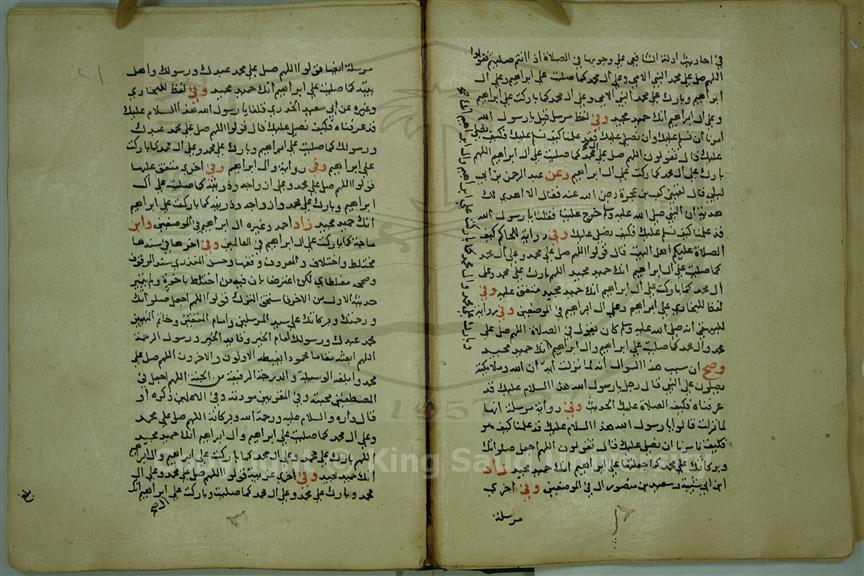 في احاديث ادلة الشافعي على وجوبها في الصلاة اذ انتم صليتم فقولوا
اللهم صل على محمد النبي الامي وعلى ال محمد كما صليت على ابراهيم وعلى ال
ابراهيم وبارك على محمد النبي الامي وعلى ال محمد كما باركت على ابراهيم
وعلى ال ابراهيم انك حميد مجيد وفي لفظ مرسل قيل يارسول الله
امرنا ان نسلم عليك وان نصلي عليك وقد علمنا كيف نسلم عليك فكيف نصلي
عليك قال تقولون اللهم صل على محمد كما صليت على ال ابراهيم اللهم
بارك على ال محمد كما باركت على ال ابراهيم وعن عبد الرحمن بن ابي
ليلى قال لقيني كعب بن عجرة رضي الله عنه فقال الا اهدي لك
هدية ان النبي صلى الله عليه وسلم خرج علينا فقلنا يارسول الله
قد علمنا كيف نسلم عليك فكيف نصلي عليك وفي رواية للحاكم كيف
الصلاة عليكم اهل البيت قال قولوا اللهم صل على محمد وعلى ال محمد
كما صليت على ال ابراهيم انك حميد مجيد اللهم بارك على محمد وعلى
ال محمد كما باركت على ال ابراهيم انك حميد مجيد متفق عليه وفي
لفظ للبخاري على ابراهيم وعلى ال ابراهيم في الموضعين وفي رواية
للبيهقي انه صلى الله عليه وسلم كان يقول في الصلاة اللهم صل على
محمد وال محمد كما صليت على ابراهيم وال ابراهيم انك حميد مجيد
وصح ان سبب هذا السؤال انه لما نزلت آية ان الله وملايكته
يصلون على النبي قال رجل يارسول الله هذا السلام عليك قد
عرفناه فكيف الصلاة عليك الحديث وفي رواية مرسلة انها
لما نزلت قالوا يا رسول الله هذا السلام عليك قد علمنا كيف هو
فكيف تامرنا ان نصلي عليك قال تقولون اللهم اجعل صلواتك
وبركاتك على محمد كما جعلتها على ابراهيم انك حميد مجيد زاد
ابن ابي شيبة وسعيد بن منصور ال في الموضعين وفي اخرى
مرسلة
مرسلة ايضا قولوا اللهم صل على محمد عبدك ورسولك واهل
بيته كما صليت على ابراهيم انك حميد مجيد وفي لفظ للبخاري
وغيره عن ابي سعيد الخدري قلنا يا رسول الله هذا السلام عليك
قد عرفناه فكيف نصلي عليك قال قولوا اللهم صل على محمد عبدك
ورسولك كما صليت على ابراهيم وبارك على محمد وعلى ال محمد كما باركت
على ابراهيم وفي رواية وال ابراهيم وفي اخرى متفق عليها
قولوا اللهم صل على محمد وعلى ازواجه وذريته كما صليت على ال
ابراهيم وبارك على محمد وازواجه وذريته كما باركت على ابراهيم
انك حميد مجيد زاد احمد وغيره ال ابراهيم في الموضعين وابن
ماجة كما باركت على ال ابراهيم في العالمين وفي اخرى في سندها
مختلط واختلاف والمعروف وقفها وحسن المنذري سند الموقوف
وصححه مغلطاي لكن اعترضا بان فيه من اختلط باخرة ولم يتميز
حديثه الاول من الاخر فاستحق الترك قولوا اللهم اجعل صلواتك
ورحمتك وبركاتك على سيد المرسلين وامام المتقين وخاتم النبيين
محمد عبدك ورسولك امام الخير وقايد الخير ورسول الرحمة
اللهم ابعثه مقاما محمودا يغبطه الاولون والاخرون اللهم صل على
محمد وابلغه الوسيلة والدرجة الرفيعة من الجنة اللهم اجعل في
المصطفين محبته وفي المقربين مودته وفي الاعلين ذكره او
قال داره والسلام عليه ورحمة الله وبركاته اللهم صل على محمد
وعلى ال محمد كما صليت على ابراهيم وال ابراهيم انك حميد مجيد
اللهم بارك على محمد وعلى ال محمد كما باركت على ابراهيم وال ابراهيم
انك حميد مجيد وفي اخرى غريبة قولوا اللهم صل على محمد وعلى ال
محمد وبارك على محمد وعلى ال محمد كما صليت وباركت على ابراهيم انك